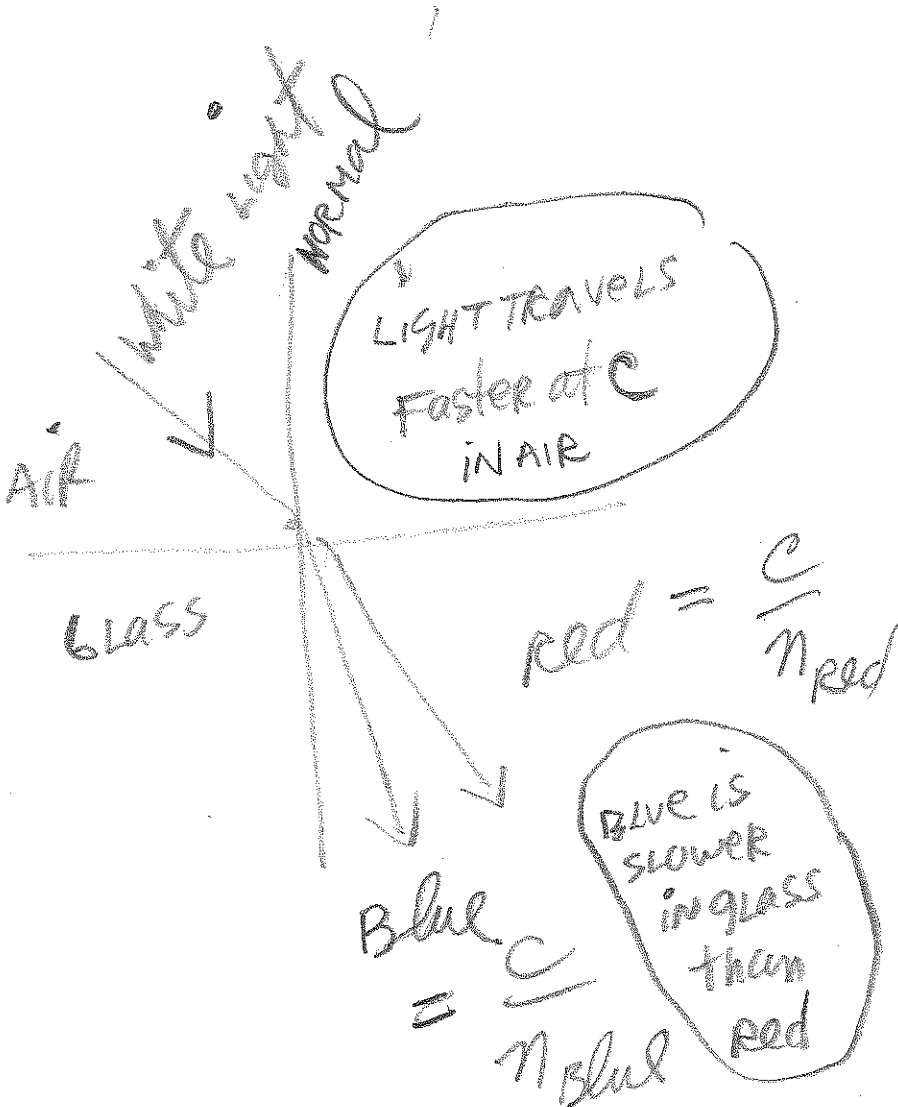 White Light
NORMAL
LIGHT TRAVELS
Faster at C
IN AIR
AIR
GLASS
Red = C / n Red
Blue
= C / n Blue
BLUE is
SLOWER
in glass
than
Red